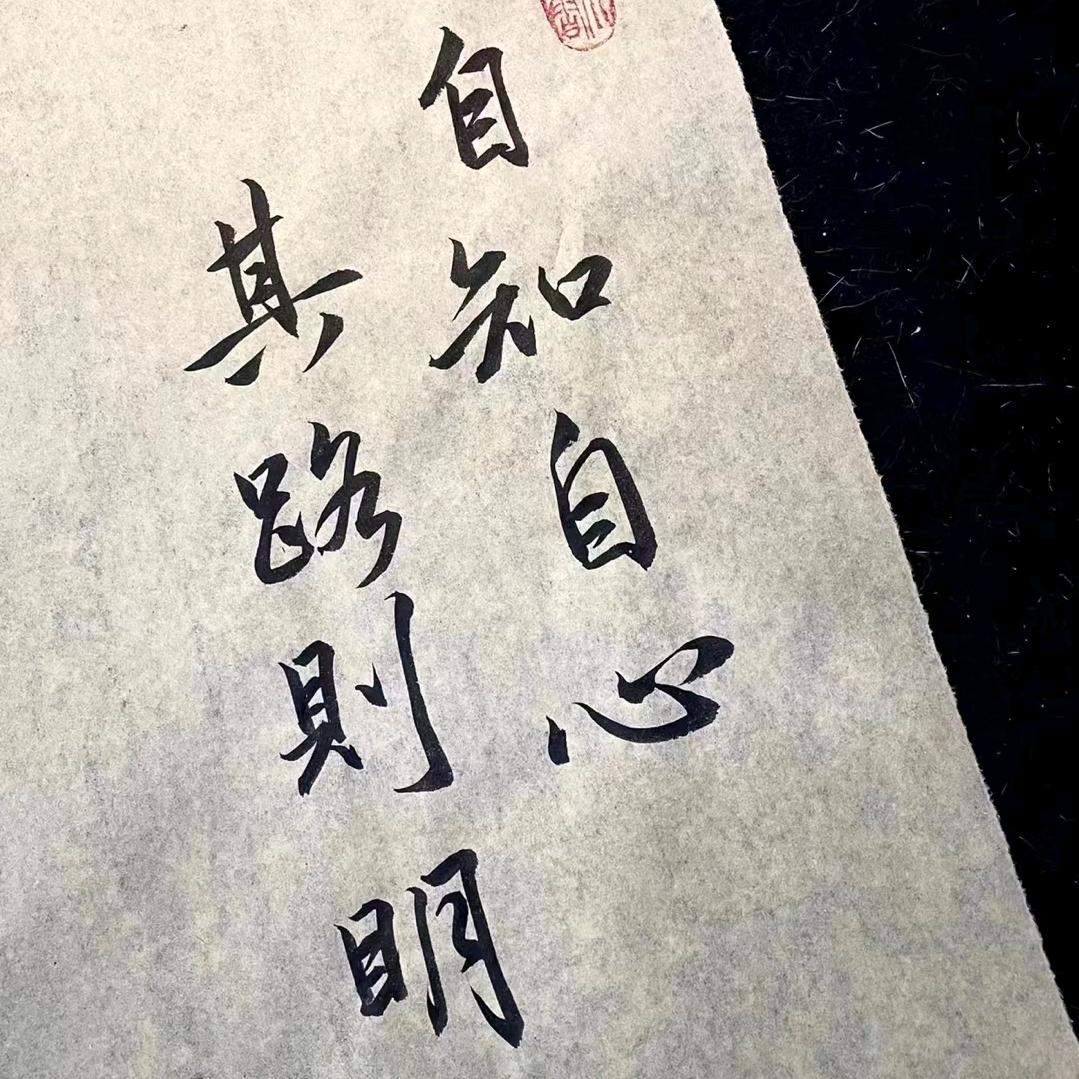 自知自心
其路則明